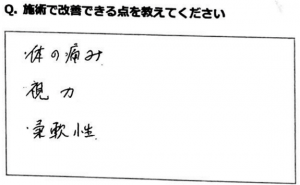 Q. 施術で改善できる点を教えてください
体の痛み
視力
柔軟性